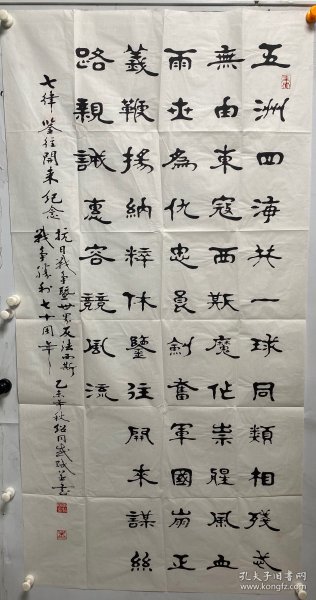 五洲四海共一球同類相殘忒
無由東寇西斯魔作祟腥風血
雨世為仇忠良劍奮軍國崩正
義鞭揚納粹休鑒往開來謀絲
路親誠惠容競風流
七律 鑒往開來紀念
抗日戰爭暨世界反法西斯
戰爭勝利七十周年
乙未年秋
孔夫子旧书网
www.kongfz.com